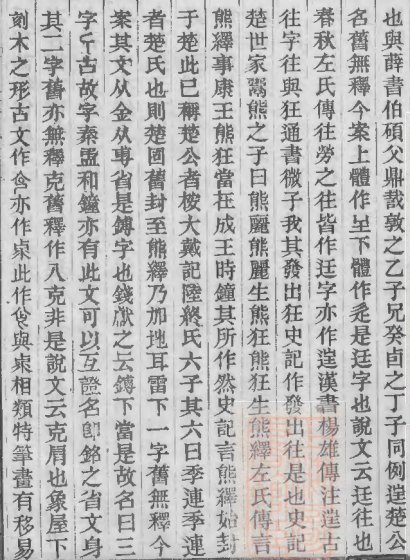 也與薛書伯碩父鼎𢦏敦之乙子兄癸卣之丁子同例遑楚公
名舊無釋今案上體作㞷下體作辵是迋字也說文云迋往也
春秋左氏傳往勞之往皆作迋字亦作遑漢書楊雄傳注遑古
往字往與狂通書微子我其發出狂史記作發出往是也史記
楚世家鬻熊之子曰熊麗熊麗生熊狂熊狂生熊繹左氏傳言
熊繹事康王熊狂當在成王時鐘其所作然史記言熊繹始封
于楚此已稱楚公者桉大戴記陸終氏六子其六曰季連季連
者楚氏也則楚固舊封至熊繹乃加地耳雷下一字舊無釋今
案其文从金从專省是鎛字也錢獻之云鎛下當是故名曰三
字故字秦盄和鐘亦有此文可以互證名卽銘之省文身
其二字舊亦無釋克舊釋作人克非是說文云克肩也象屋下
刻木之形古文作亦作㔳此作與㔳相類特筆畫有移易